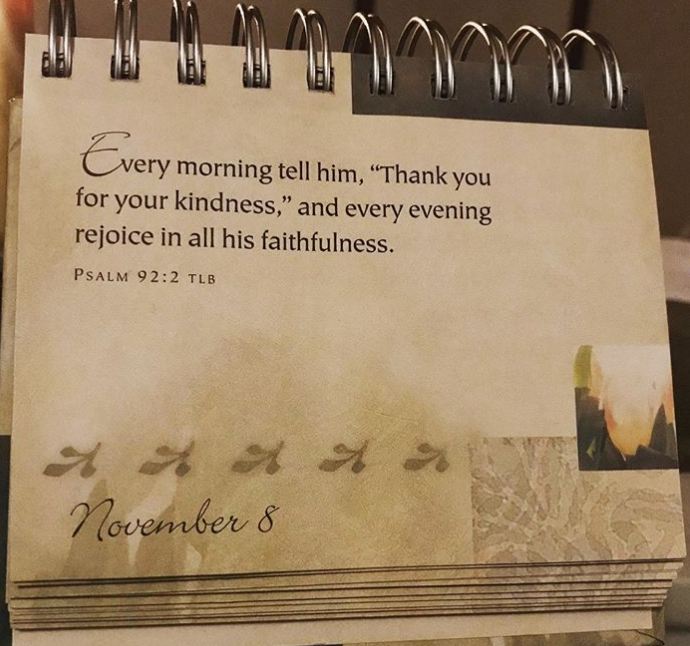 Every morning tell him, “Thank you
for your kindness,” and every evening
rejoice in all his faithfulness.
PSALM 92:2 TLB
November 8